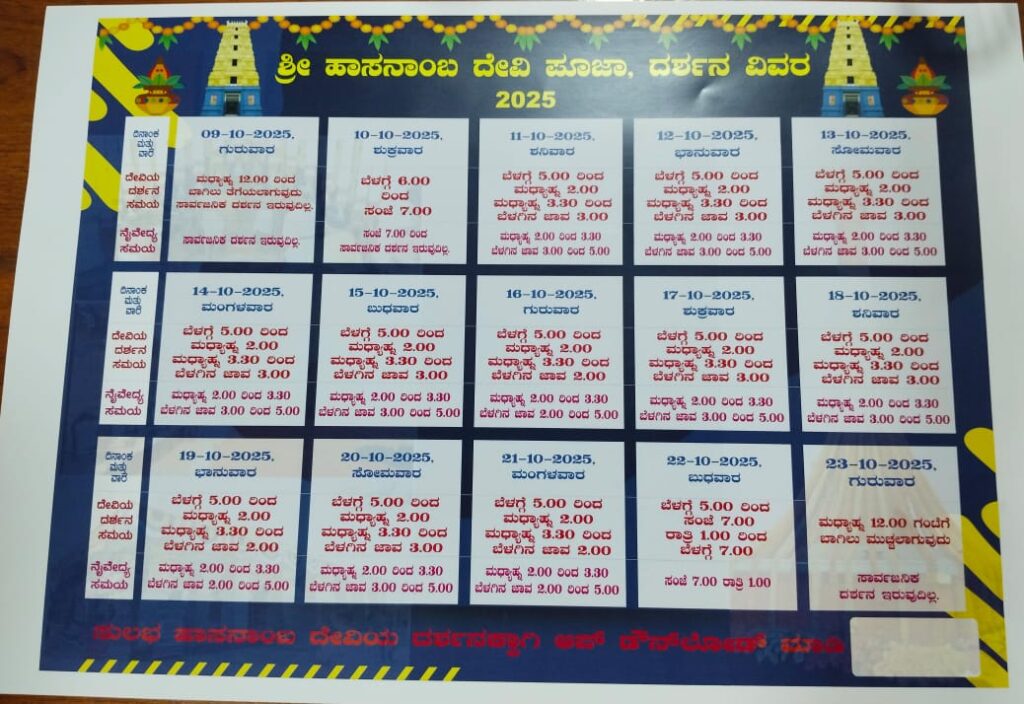 ಶ್ರೀ ಹಾಸನಾಂಬ ದೇವಿ ಪೂಜಾ, ದರ್ಶನ ವಿವರ
2025
ದಿನಾಂಕ
ಮತ್ತು
ವಾರ
ದೇವಿಯ
ದರ್ಶನ
ಸಮಯ
ನೈವೇದ್ಯ
ಸಮಯ
09-10-2025,
ಗುರುವಾರ
ಮಧ್ಯಾಹ್ನ 12.00 ರಿಂದ
ಬಾಗಿಲು ತೆಗೆಯಲಾಗುವುದು
ಸಾರ್ವಜನಿಕ ದರ್ಶನ ಇರುವುದಿಲ್ಲ.
ಸಾರ್ವಜನಿಕ ದರ್ಶನ ಇರುವುದಿಲ್ಲ.
10-10-2025,
ಶುಕ್ರವಾರ
ಬೆಳಗ್ಗೆ 6.00
ರಿಂದ
ಸಂಜೆ 7.00
ಸಂಜೆ 7.00 ರಿಂದ
ಸಾರ್ವಜನಿಕ ದರ್ಶನ ಇರುವುದಿಲ್ಲ.
11-10-2025,
ಶನಿವಾರ
ಬೆಳಗ್ಗೆ 5.00 ರಿಂದ
ಮಧ್ಯಾಹ್ನ 2.00
ಮಧ್ಯಾಹ್ನ 3.30 ರಿಂದ
ಬೆಳಗಿನ ಜಾವ 3.00
ಮಧ್ಯಾಹ್ನ 2.00 ರಿಂದ 3.30
ಬೆಳಗಿನ ಜಾವ 3.00 ರಿಂದ 5.00
12-10-2025,
ಭಾನುವಾರ
ಬೆಳಗ್ಗೆ 5.00 ರಿಂದ
ಮಧ್ಯಾಹ್ನ 2.00
ಮಧ್ಯಾಹ್ನ 3.30 ರಿಂದ
ಬೆಳಗಿನ ಜಾವ 3.00
ಮಧ್ಯಾಹ್ನ 2.00 ರಿಂದ 3.30
ಬೆಳಗಿನ ಜಾವ 3.00 ರಿಂದ 5.00
13-10-2025,
ಸೋಮವಾರ
ಬೆಳಗ್ಗೆ 5.00 ರಿಂದ
ಮಧ್ಯಾಹ್ನ 2.00
ಮಧ್ಯಾಹ್ನ 3.30 ರಿಂದ
ಬೆಳಗಿನ ಜಾವ 3.00
ಮಧ್ಯಾಹ್ನ 2.00 ರಿಂದ 3.30
ಬೆಳಗಿನ ಜಾವ 3.00 ರಿಂದ 5.00
ದಿನಾಂಕ
ಮತ್ತು
ವಾರ
ದೇವಿಯ
ದರ್ಶನ
ಸಮಯ
ನೈವೇದ್ಯ
ಸಮಯ
14-10-2025,
ಮಂಗಳವಾರ
ಬೆಳಗ್ಗೆ 5.00 ರಿಂದ
ಮಧ್ಯಾಹ್ನ 2.00
ಮಧ್ಯಾಹ್ನ 3.30 ರಿಂದ
ಬೆಳಗಿನ ಜಾವ 3.00
ಮಧ್ಯಾಹ್ನ 2.00 ರಿಂದ 3.30
ಬೆಳಗಿನ ಜಾವ 3.00 ರಿಂದ 5.00
15-10-2025,
ಬುಧವಾರ
ಬೆಳಗ್ಗೆ 5.00 ರಿಂದ
ಮಧ್ಯಾಹ್ನ 2.00
ಮಧ್ಯಾಹ್ನ 3.30 ರಿಂದ
ಬೆಳಗಿನ ಜಾವ 3.00
ಮಧ್ಯಾಹ್ನ 2.00 ರಿಂದ 3.30
ಬೆಳಗಿನ ಜಾವ 3.00 ರಿಂದ 5.00
16-10-2025,
ಗುರುವಾರ
ಬೆಳಗ್ಗೆ 5.00 ರಿಂದ
ಮಧ್ಯಾಹ್ನ 2.00
ಮಧ್ಯಾಹ್ನ 3.30 ರಿಂದ
ಬೆಳಗಿನ ಜಾವ 2.00
ಮಧ್ಯಾಹ್ನ 2.00 ರಿಂದ 3.30
ಬೆಳಗಿನ ಜಾವ 2.00 ರಿಂದ 5.00
17-10-2025,
ಶುಕ್ರವಾರ
ಬೆಳಗ್ಗೆ 5.00 ರಿಂದ
ಮಧ್ಯಾಹ್ನ 2.00
ಮಧ್ಯಾಹ್ನ 3.30 ರಿಂದ
ಬೆಳಗಿನ ಜಾವ 3.00
ಮಧ್ಯಾಹ್ನ 2.00 ರಿಂದ 3.30
ಬೆಳಗಿನ ಜಾವ 3.00 ರಿಂದ 5.00
18-10-2025,
ಶನಿವಾರ
ಬೆಳಗ್ಗೆ 5.00 ರಿಂದ
ಮಧ್ಯಾಹ್ನ 2.00
ಮಧ್ಯಾಹ್ನ 3.30 ರಿಂದ
ಬೆಳಗಿನ ಜಾವ 3.00
ಮಧ್ಯಾಹ್ನ 2.00 ರಿಂದ 3.30
ಬೆಳಗಿನ ಜಾವ 3.00 ರಿಂದ 5.00
ದಿನಾಂಕ
ಮತ್ತು
ವಾರ
ದೇವಿಯ
ದರ್ಶನ
ಸಮಯ
ನೈವೇದ್ಯ
ಸಮಯ
19-10-2025,
ಭಾನುವಾರ
ಬೆಳಗ್ಗೆ 5.00 ರಿಂದ
ಮಧ್ಯಾಹ್ನ 2.00
ಮಧ್ಯಾಹ್ನ 3.30 ರಿಂದ
ಬೆಳಗಿನ ಜಾವ 2.00
ಮಧ್ಯಾಹ್ನ 2.00 ರಿಂದ 3.30
ಬೆಳಗಿನ ಜಾವ 2.00 ರಿಂದ 5.00
20-10-2025,
ಸೋಮವಾರ
ಬೆಳಗ್ಗೆ 5.00 ರಿಂದ
ಮಧ್ಯಾಹ್ನ 2.00
ಮಧ್ಯಾಹ್ನ 3.30 ರಿಂದ
ಬೆಳಗಿನ ಜಾವ 3.00
ಮಧ್ಯಾಹ್ನ 2.00 ರಿಂದ 3.30
ಬೆಳಗಿನ ಜಾವ 3.00 ರಿಂದ 5.00
21-10-2025,
ಮಂಗಳವಾರ
ಬೆಳಗ್ಗೆ 5.00 ರಿಂದ
ಮಧ್ಯಾಹ್ನ 2.00
ಮಧ್ಯಾಹ್ನ 3.30 ರಿಂದ
ಬೆಳಗಿನ ಜಾವ 2.00
ಮಧ್ಯಾಹ್ನ 2.00 ರಿಂದ 3.30
ಬೆಳಗಿನ ಜಾವ 2.00 ರಿಂದ 5.00
22-10-2025,
ಬುಧವಾರ
ಬೆಳಗ್ಗೆ 5.00 ರಿಂದ
ಸಂಜೆ 7.00
ರಾತ್ರಿ 1.00 ರಿಂದ
ಬೆಳಗ್ಗೆ 7.00
ಸಂಜೆ 7.00 ರಾತ್ರಿ 1.00
23-10-2025,
ಗುರುವಾರ
ಮಧ್ಯಾಹ್ನ 12.00 ಗಂಟೆಗೆ
ಬಾಗಿಲು ಮುಚ್ಚಲಾಗುವುದು
ಸಾರ್ವಜನಿಕ
ದರ್ಶನ ಇರುವುದಿಲ್ಲ.
ಸುಲಭ ಹಾಸನಾಂಬ ದೇವಿಯ ದರ್ಶನಕ್ಕಾಗಿ ಆಪ್ ಡೌನ್‌ಲೋಡ್ ಮಾಡಿ